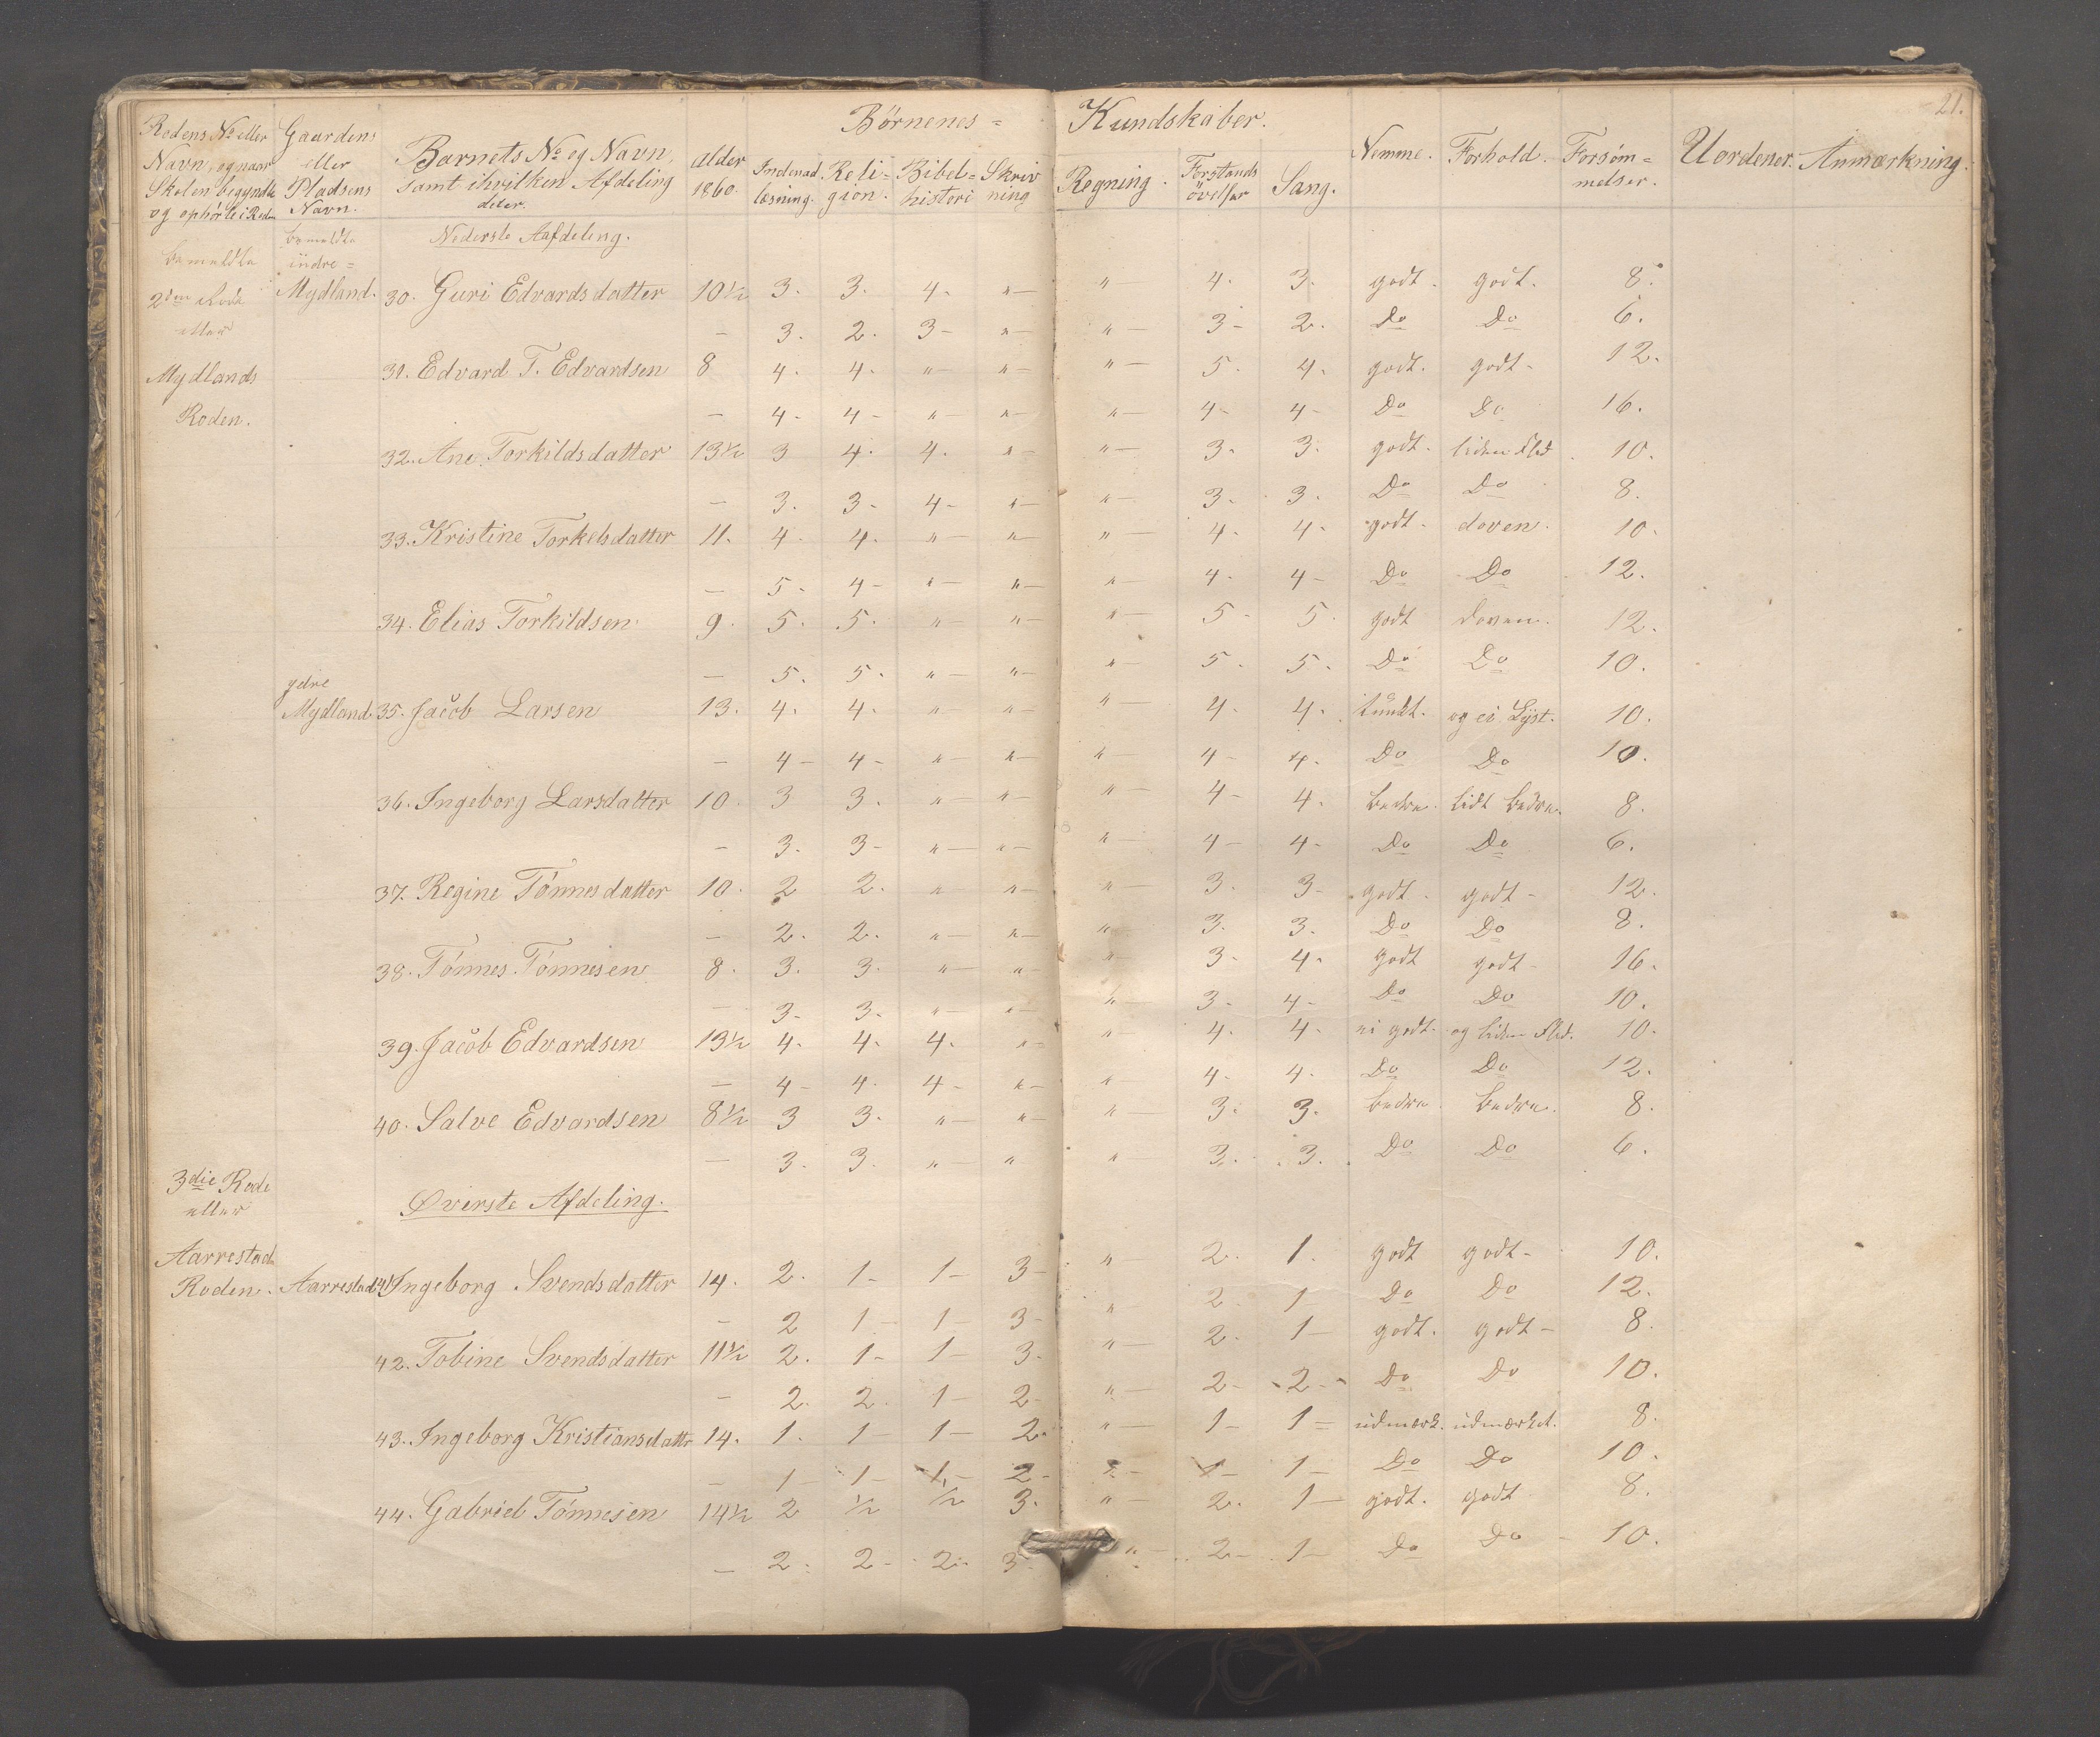 21.
Börnenes = Kundskaber.
Rodens No eller Navn, og naar Skolen begyndte og ophörte i Roden
Gaardens eller Pladsens Navn.
Barnets No og Navn, samt i hvilken Afdeling deter.
Alder 1860.
Indenad læsning.
Reli=gion.
Bibel=histori
Skriv ning
Regning.
Forstands övelser
Sang.
Nemme.
Forhold.
Forsöm=melser.
Uordener.
Anmærkning.
Nederste Aafdeling.
bemeldte 2den Rode eller Mydlands Roden.
bemeldte indre= Mydland.
30. Guri Edvardsdatter 10½ 3. 3. 4. "— "— 4. 3. godt. godt. 8.
— 3. 2. 3- "— "— 3- 2. Do Do 6.
31. Edvard T. Edvardsen 8 4. 4. "— "— "— 5. 4. godt. godt- 12.
— 4- 4- "— "— "— 4- 4- Do Do 16.
32. Ane Torkildsdatter 13½ 3 4. 4. "— "— 3. 3. godt. liden Flid. 10.
— 3. 3- 4- "— "— 3. 3. Do Do 8.
33. Kristine Torkelsdatter 11. 4. 4. "— "— "— 4. 4- godt. doven. 10.
— 5- 4- "— "— "— 4- 4- Do Do 12.
34. Elias Torkildsen. 9. 5. 5. "— "— "— 5- 5. godt doven. 12.
— 5. 5. "— "— "— 5. 5. Do Do 10.
ydre
Mydland 35. Jacob Larsen 13. 4. 4. "— "— "— 4. 4. tungt. og ei Lyst. 10.
— 4- 4- "— "— "— 4- 4. Do Do 10.
36. Ingeborg Larsdatter 10. 3 3. "— "— "— 4- 4. bedre. lidt bedre. 8.
— 3. 3- "— "— "— 4- 4- Do Do 6.
37. Regine Tönnesdatter 10. 2 2. "— "— "— 3. 3- godt- godt- 12.
— 2. 2. "— "— "— 3. 3. Do Do 8.
38. Tönnes Tönnesen 8. 3. 3. "— "— "— 3- 4. godt godt- 16.
— 3- 3. "— "— "— 3- 4- Do Do 10.
39. Jacob Edvardsen 13½ 4. 4. 4. "— "— 4. 4- ei godt. og liden Flid. 10.
— 4- 4. 4- "— "— 4. 4. Do Do 12.
40. Salve Edvardsen 8½ 3 3. "— "— "— 3. 3. bedre. bedre. 8.
— 3. 3. "— " "— 3. 3. Do Do 6.
3die Rode eller Aarrestad Roden.
Øverste Afdeling.
Aarrestad 41. Ingeborg Svendsdatter 14. 2. 1- 1- 3- "— 2. 1. godt godt- 10.
— 2 1- 1- 3- " 2 1- Do Do 12.
42. Tobine Svendsdatter 11½ 2. 1- 1- 3. "— 2. 1- godt. godt- 8.
— 2. 2. 1- 2- "— 2- 2- Do Do 10.
43. Ingeborg Kristiansdatter 14. 1. 1- 1- 2. "— 1- 1= udmærk. udmærket. 8.
— 1- 1- 1,- 2- "— 1- 1- Do Do 10.
44. Gabriel Tönnesen 14½ 2 ½ ½ 3. "— 2. 1- godt. godt 8.
— 2. 2- 2. 3. "— 2- 1- Do Do 10.